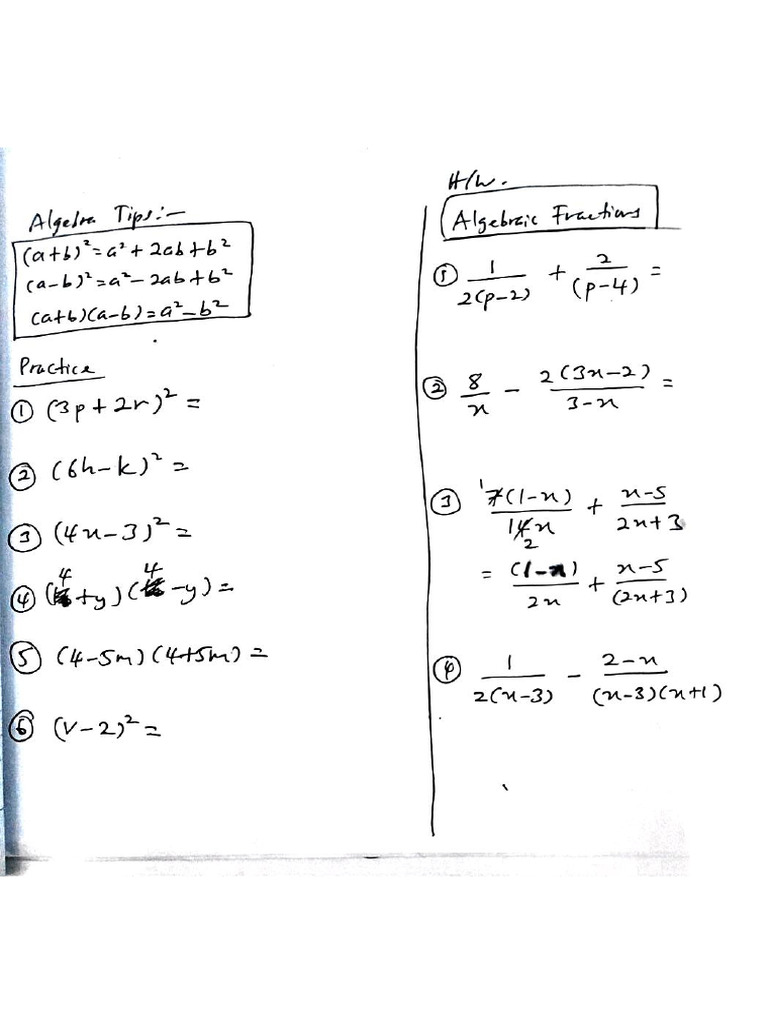 Algebra Tips:-
(a+b)² = a² + 2ab + b²
(a-b)² = a² - 2ab + b²
(a+b)(a-b) = a² - b²
Practice
① (3p + 2r)² =
② (6h - k)² =
③ (4x - 3)² =
④ (4 + y)(4 - y) =
⑤ (4 - 5m)(4 + 5m) =
⑥ (v - 2)² =
H/W.
Algebraic Fractions
① 1/2(p-2) + 2/(p-4) =
② 8/x - 2(3x-2)/3-x =
③ 7(1-x)/14x + x-5/2x+3
= (1-x)/2x + x-5/(2x+3)
④ 1/2(x-3) - 2-x/(x-3)(x+1)